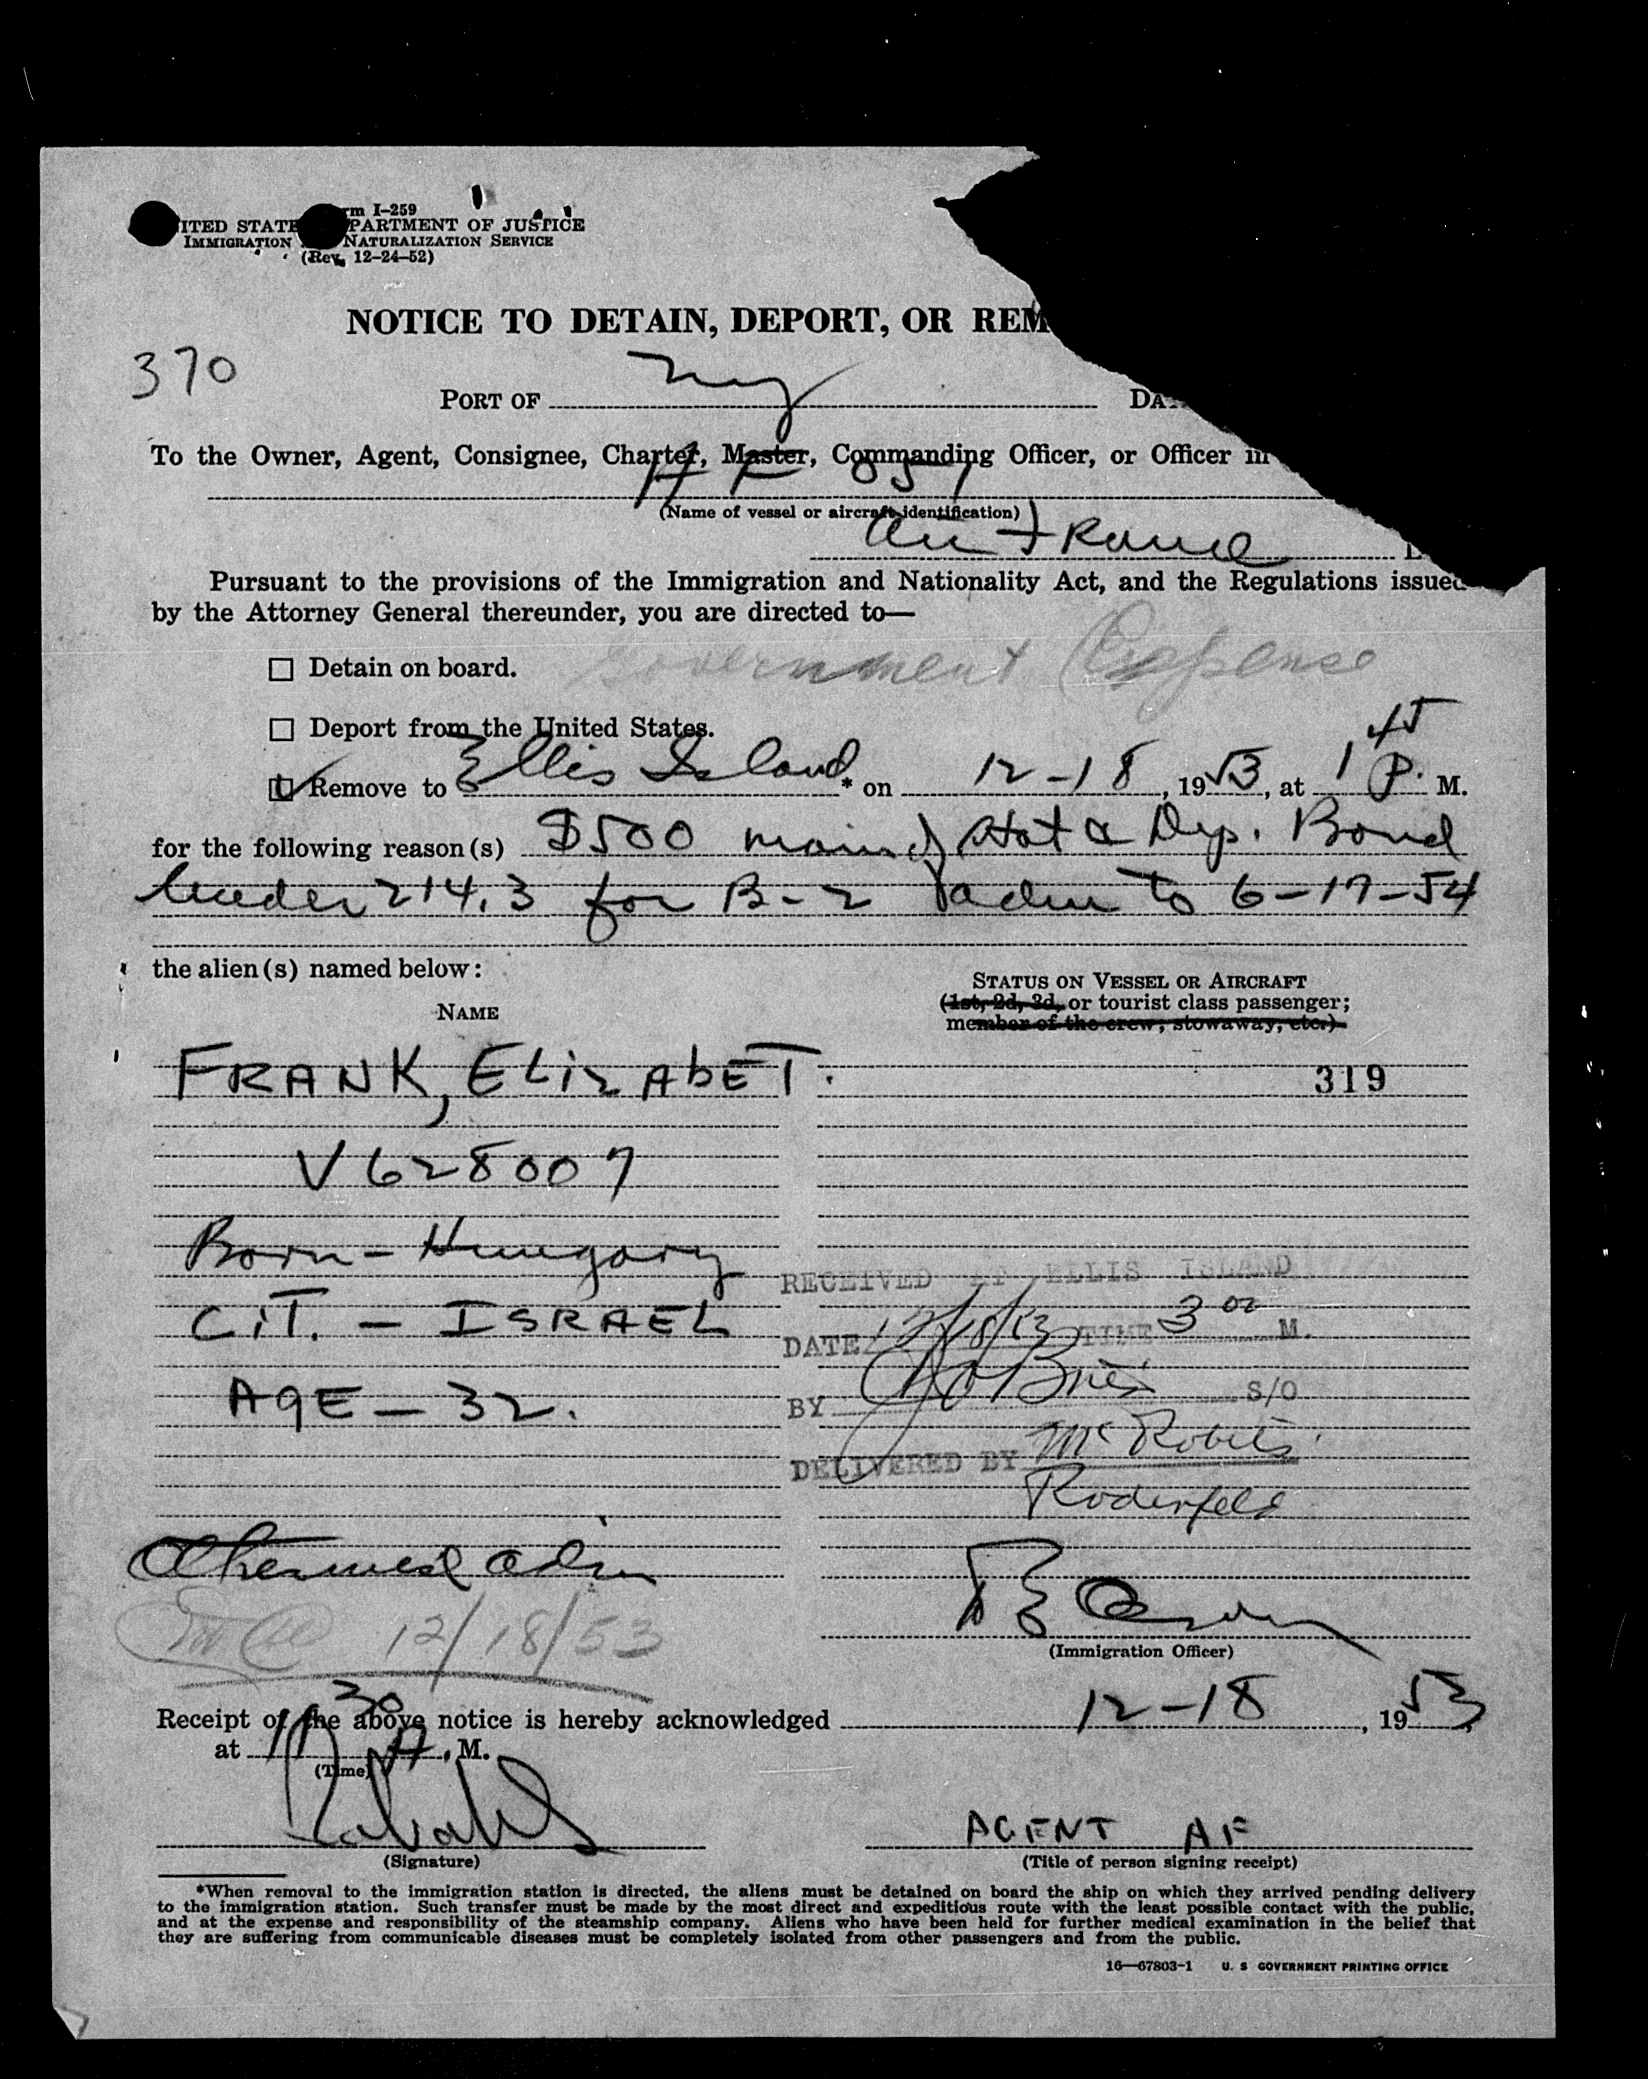 rm I-259
ITED STATE PARTMENT OF JUSTICE
IMMIGRATION NATURALIZATION SERVICE
(Rev. 12-24-52)
NOTICE TO DETAIN, DEPORT, OR REM
370
PORT OF NY DA
To the Owner, Agent, Consignee, Charter, Master, Commanding Officer, or Officer in
AF 051
(Name of vessel or aircraft identification)
Air France
Pursuant to the provisions of the Immigration and Nationality Act, and the Regulations issued
by the Attorney General thereunder, you are directed to—
Government Expense
☐ Detain on board.
☐ Deport from the United States.
☑ Remove to Ellis Island * on 12-18, 1953, at 1 45 P. M.
for the following reason(s) $500 main of stat & Dep. Bond
under 214.3 for B-2 adm to 6-17-54
the alien(s) named below:
STATUS ON VESSEL OR AIRCRAFT
(1st, 2d, 3d, or tourist class passenger;
member of the crew; stowaway, etc.)
NAME
FRANK, ELIZABET.
319
V628007
Born - Hungary
RECEIVED AT ELLIS ISLAND
CIT. - ISRAEL
DATE 12/18/53 TIME 3 00 M.
AGE - 32.
BY O'Brien S/O
DELIVERED BY McRoberts
Roderfeld
Otherwise adm
12/18/53
(Immigration Officer)
Receipt of the above notice is hereby acknowledged 12-18, 1953,
at 11 30 A. M.
(Time)
AGENT AF
(Signature)
(Title of person signing receipt)
*When removal to the immigration station is directed, the aliens must be detained on board the ship on which they arrived pending delivery
to the immigration station. Such transfer must be made by the most direct and expeditious route with the least possible contact with the public,
and at the expense and responsibility of the steamship company. Aliens who have been held for further medical examination in the belief that
they are suffering from communicable diseases must be completely isolated from other passengers and from the public.
16—67803-1 U. S GOVERNMENT PRINTING OFFICE